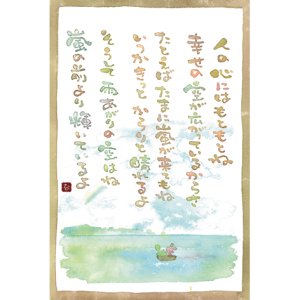 人の心にはもともとね
幸せの空が広がっているからさ
たとえばたまに嵐が来てもね
いつかきっと からりと晴れるよ
そうして雨あがりの空はね
嵐の前より輝いているよ